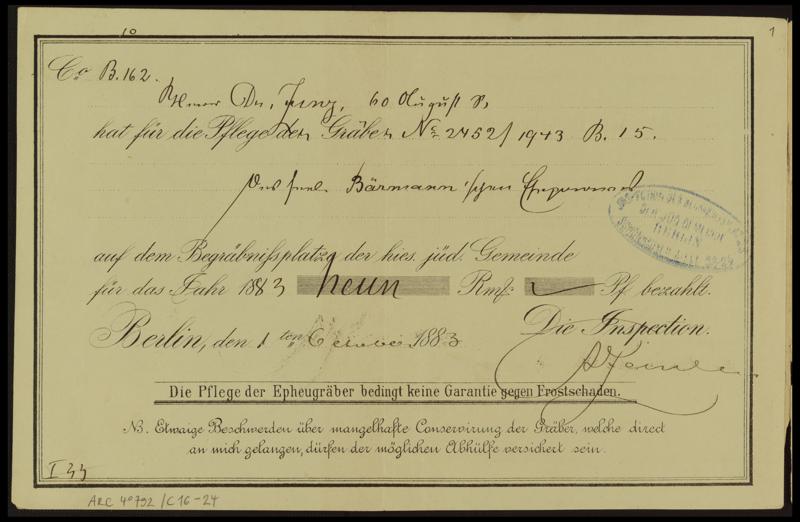 1
Co. B. 162.
Herr Dr.
hat für die Pflege der Gräber No 2452/1943 B. 15.
Bärmann'schen
auf dem Begräbnißplatze der hies. jüd. Gemeinde
für das Jahr 1883 neun Rmk: Pf. bezahlt.
Berlin, den 1ten 1883
Die Inspection.
Die Pflege der Epheugräber bedingt keine Garantie gegen Frostschaden.
NB. Etwaige Beschwerden über mangelhafte Conservirung der Gräber, welche direct
an mich gelangen, dürfen der möglichen Abhülfe versichert sein.
I 33
ARC 4° 792 / C16-24